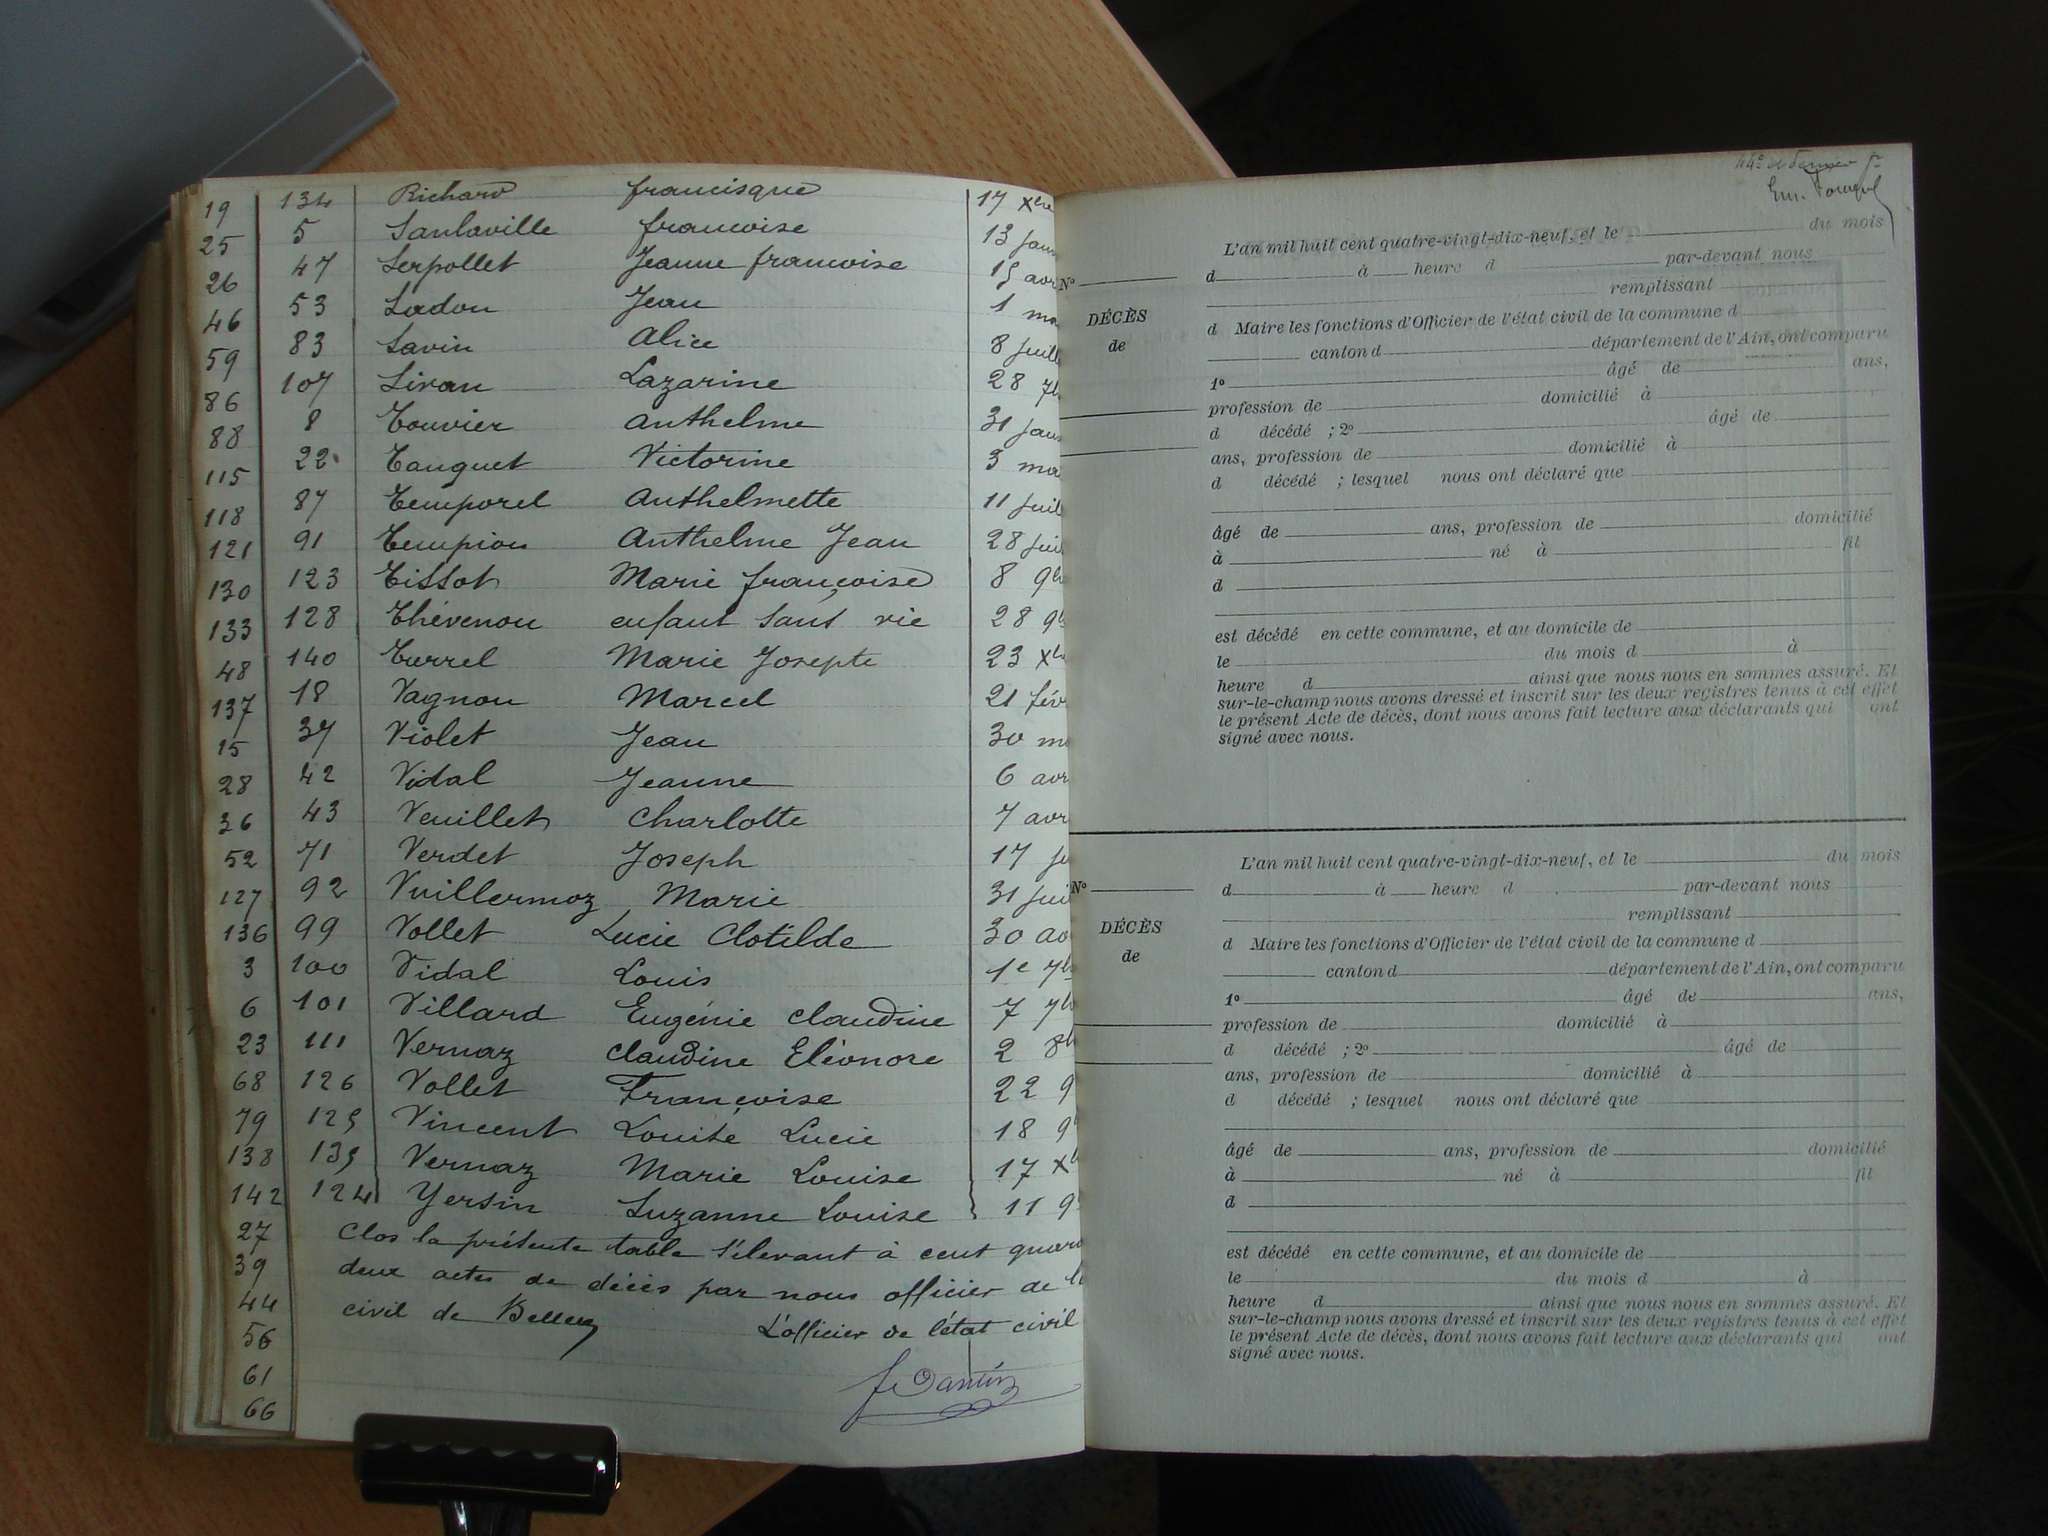 19
25
26
46
59
86
88
115
118
121
130
133
48
137
15
28
36
52
127
136
3
6
23
68
79
138
142
27
39
44
56
61
66
134 Richard francisque 17 Xbre
5 Sanlaville francoise 13 janv
47 Serpollet Jeanne francoise 15 avr
53 Sadou Jean 1 ma
83 Savin Alice 8 juill
107 Sivan Lazarine 28 7b
8 Touvier Anthelme 31 janv
22 Tauguet Victorine 3 ma
87 Temporel Anthelmette 11 juil
91 Tempion Anthelme Jean 28 juil
123 Tissot Marie françoise 8 9b
128 Thévenon enfant sans vie 28 9b
140 Turrel Marie Josepte 23 Xb
18 Vagnon Marcel 21 févr
37 Violet Jean 30 ma
42 Vidal Jeanne 6 avr
43 Veuillet Charlotte 7 avr
71 Verdet Joseph 17 ju
92 Vuillermoz Marie 31 juil
99 Vollet Lucie Clotilde 30 ao
100 Vidal Louis 1e 7b
101 Villard Eugénie Claudine 7 7b
111 Vernaz Claudine Eléonore 2 8b
126 Vollet Françoise 22 9
125 Vincent Louise Lucie 18 9
135 Vernaz Marie Louise 17 Xb
124 Yersin Suzanne Louise 11 9
Clos la présente table s'élevant à cent quara
deux actes de décès par nous officier de l'
civil de Belley
L'officier de l'état civil
L'an mil huit cent quatre-vingt-dix-neuf, et le du mois
No d à heure d par-devant nous
remplissant
DÉCÈS
de
d Maire les fonctions d'Officier de l'état civil de la commune d
canton d département de l'Ain, ont comparu
1o âgé de ans,
profession de domicilié à
d décédé ; 2o âgé de
ans, profession de domicilié à
d décédé ; lesquel nous ont déclaré que
âgé de ans, profession de domicilié
à né à fil
d
est décédé en cette commune, et au domicile de
le du mois d à
heure d ainsi que nous nous en sommes assuré. Et
sur-le-champ nous avons dressé et inscrit sur les deux registres tenus à cet effet
le présent Acte de décès, dont nous avons fait lecture aux déclarants qui ont
signé avec nous.
L'an mil huit cent quatre-vingt-dix-neuf, et le du mois
No d à heure d par-devant nous
remplissant
DÉCÈS
de
d Maire les fonctions d'Officier de l'état civil de la commune d
canton d département de l'Ain, ont comparu
1o âgé de ans,
profession de domicilié à
d décédé ; 2o âgé de
ans, profession de domicilié à
d décédé ; lesquel nous ont déclaré que
âgé de ans, profession de domicilié
à né à fil
d
est décédé en cette commune, et au domicile de
le du mois d à
heure d ainsi que nous nous en sommes assuré. Et
sur-le-champ nous avons dressé et inscrit sur les deux registres tenus à cet effet
le présent Acte de décès, dont nous avons fait lecture aux déclarants qui ont
signé avec nous.